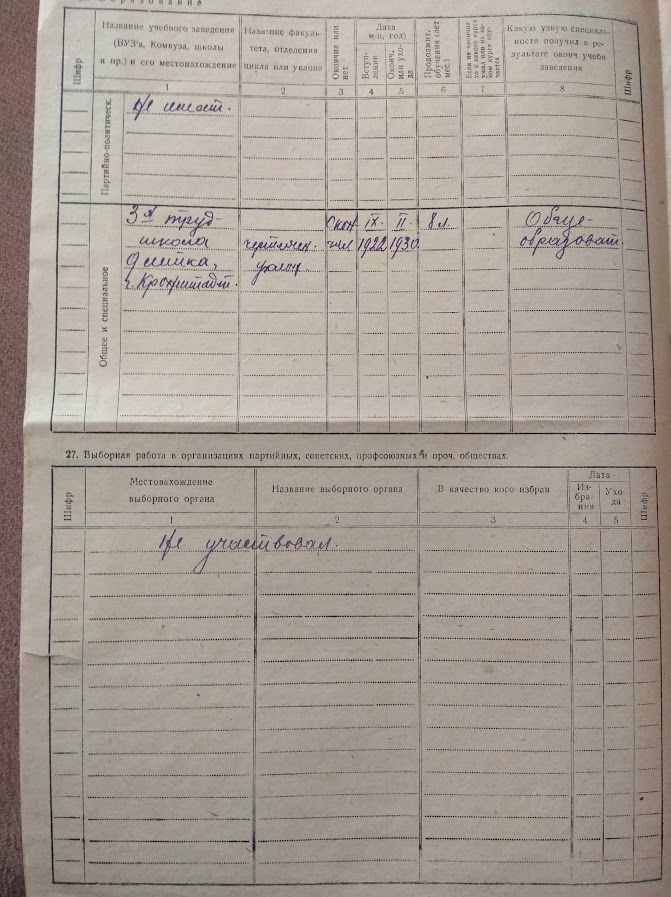 Образование
Шифр
Название учебного заведения
(ВУЗ'а, Комвуза, школы
и пр.) и его местонахождение
Название факуль-
тета, отделения
цикла или уклона
Окончил или
нет
Дата
м-ц, год)
Вступ-
ления
Оконч.
или ухо-
да
Продолжит.
обучения (лет
мес.)
Если не окончил
то с какого курса
ушел или на ка-
ком курсе обу-
чается
Какую узкую специаль-
ность получил в ре-
зультате оконч. учебн
заведения
Шифр
1 2 3 4 5 6 7 8
Партийно-политическ.
Не имеет.
Общее и специальное
3я труд- Окон- IX. II 8 л. Обще-
школа чертежн. чил 1922 1930 образоват.
9 летка, уклон.
г. Кронштадт.
27. Выборная работа в организациях партийных, советских, профсоюзных и проч. обществах.
Шифр
Местовахождение
выборного органа
Название выборного органа
В качество кого избран
Дата
Из-
бра-
ния
Ухо-
да
Шифр
1 2 3 4 5
Не участвовал.